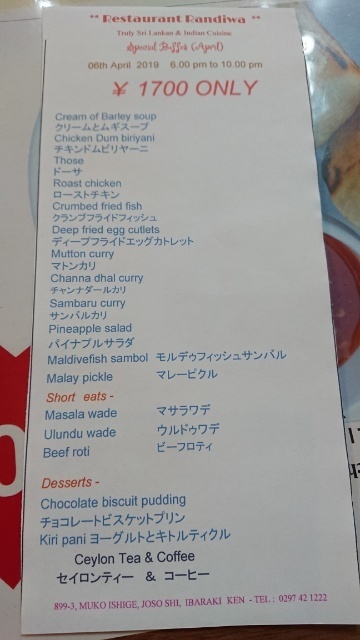 ** Restaurant Randiwa **
Truly Sri Lankan & Indian Cuisine
Special Buffet (April)
06th April 2019 6.00 pm to 10.00 pm
¥ 1700 ONLY
Cream of Barley soup
クリームとムギスープ
Chicken Dum biriyani
チキンドムビリヤーニ
Those
ドーサ
Roast chicken
ローストチキン
Crumbed fried fish
クランブフライドフィッシュ
Deep fried egg cutlets
ディープフライドエッグカトレット
Mutton curry
マトンカリ
Channa dhal curry
チャンナダールカリ
Sambaru curry
サンバルカリ
Pineapple salad
パイナブルサラダ
Maldivefish sambol モルデゥフィッシュサンバル
Malay pickle マレーピクル
Short eats -
Masala wade マサラワデ
Ulundu wade ウルドゥワデ
Beef roti ビーフロティ
Desserts -
Chocolate biscuit pudding
チョコレートビスケットプリン
Kiri pani ヨーグルトとキトルティクル
Ceylon Tea & Coffee
セイロンティー & コーヒー
899-3, MUKO ISHIGE, JOSO SHI, IBARAKI KEN - TEL : 0297 42 1222